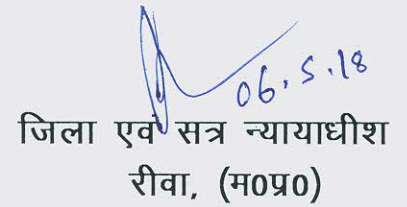 06.5.18
जिला एवं सत्र न्यायाधीश
रीवा, (म0प्र0)